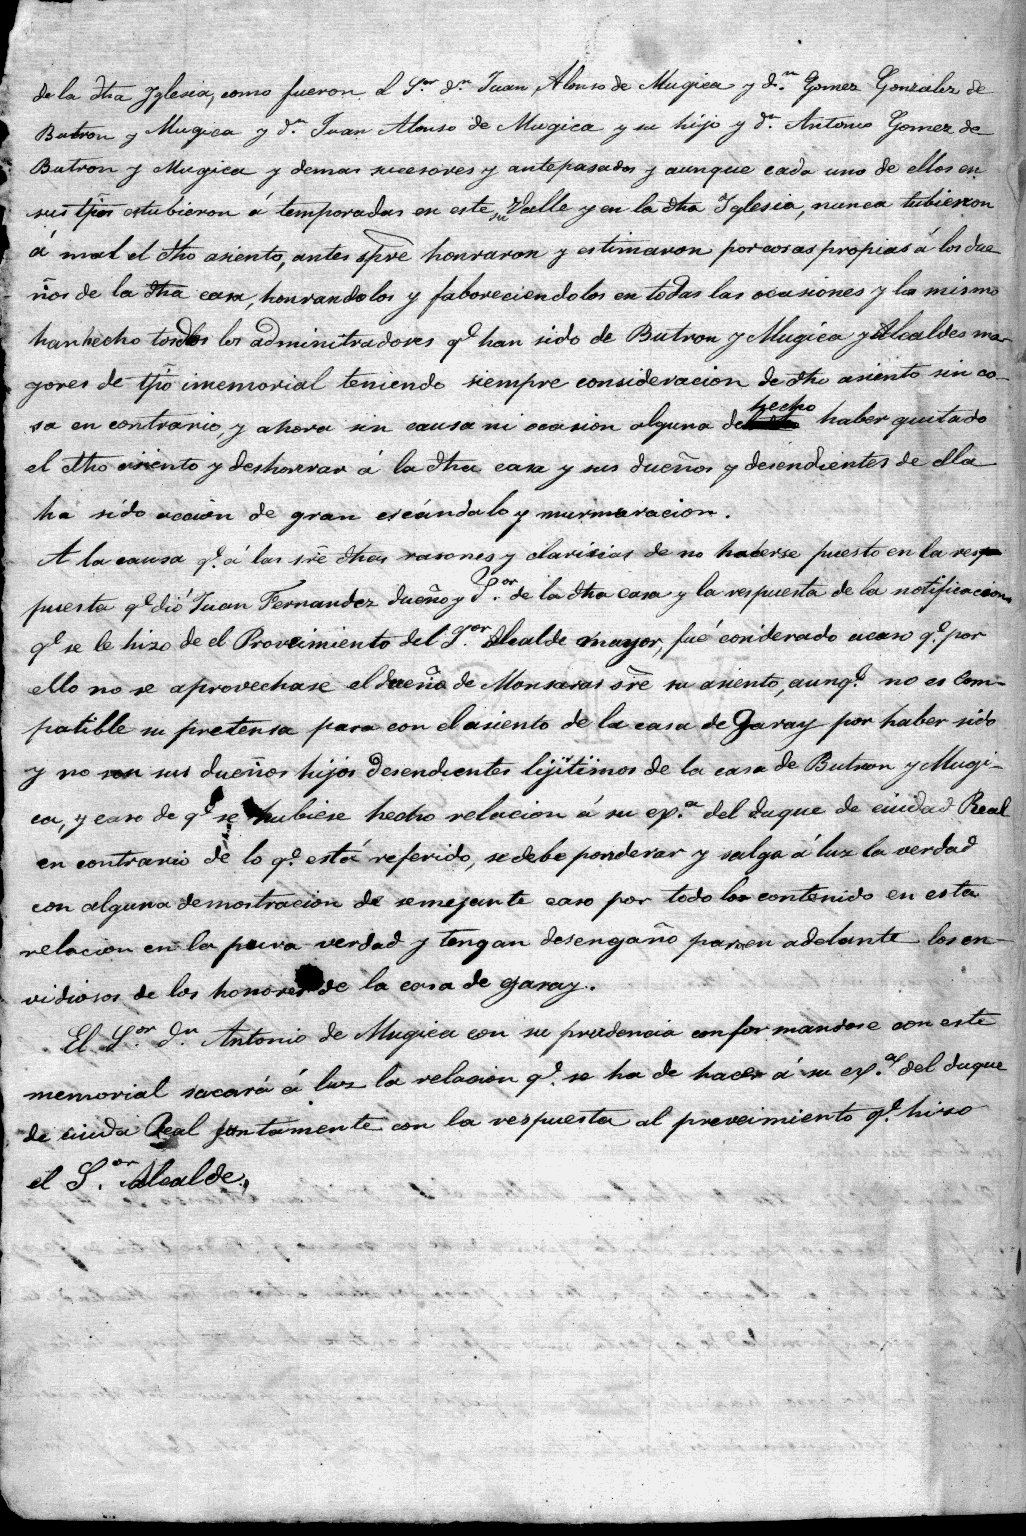 de la dha Yglesia, como fueron el S.or d.n Juan Alonso de Mugica y d.n Gomez Gonzalez de
Butron y Mugica y d.n Juan Alonso de Mugica y su hijo y d.n Antonio Gomez de
Butron y Mugica y demas sucesores y antepasados y aunque cada uno de ellos en
sus tpos estubieron á temporadas en este su Valle y en la dha Yglesia, nunca tubieron
á mal el dho asiento, antes spre honraron y estimaron por cosas propias á los due
ños de la dha casa, honrandolos y faboreciendolos en todas las ocasiones y la mismo
han hecho todos los adminitradores q.e han sido de Butron y Mugica y Alcaldes ma-
yores de tpo imemorial teniendo siempre consideracion de dho asiento sin co-
sa en contrario, y ahora sin causa ni ocasion alguna de hecho haber quitado
el dho asiento y deshonrar á la dha casa y sus dueños y desendientes de ella
ha sido accion de gran escándalo y murmuracion.
A la causa q.e á las sre dhas rasones y clarisias de no haberse puesto en la res
puesta q.e dió Juan Fernandez dueño y S.or de la dha casa y la respuesta de la notificacion
q.e se le hizo de el Proveimiento del S.or Alcalde mayor, fué coniderado acaso q.e por
ello no se aprovechase el dueño de Monsaras sre su asiento, aunq.e no es Com-
patible su pretensa para con el asiento de la casa de Garay por haber sido
y no son sus dueños hijos desendientes lijitimos de la casa de Butron y Mugi-
ca, y caso de q.e se hubiese hecho relacion á su ex.a del duque de ciudad Real
en contrario de lo q.e está referido, se debe ponderar y salga á luz la verdad
con alguna demostracion de semejante caso por todo lo contenido en esta
relacion en la pura verdad y tengan desengaño para en adelante los en-
vidiosos de los honores de la casa de garay.
El S.or d.n Antonio de Mugica con su prudencia conformandose con este
memorial sacará á luz la relacion q.e se ha de hacer á su ex.a del duque
de ciuda Real juntamente con la respuesta al proveimiento q.e hizo
el S.or Alcalde.